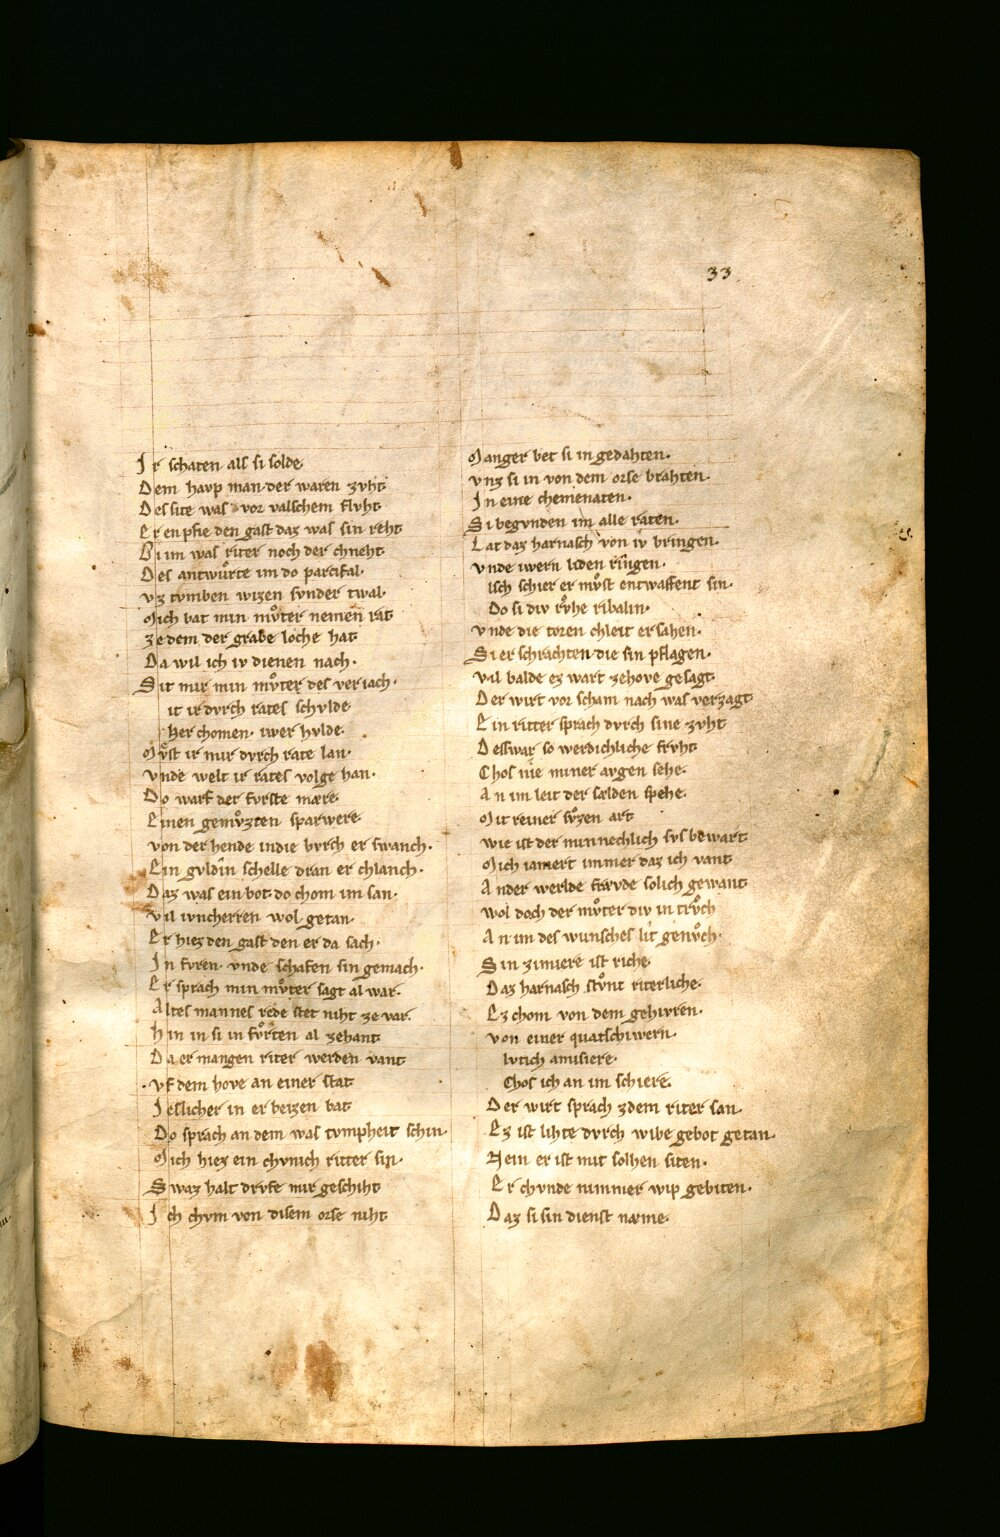 33
Ir schaten als si solde
Dem havp man der waren zvht
Des site was vor valschem flvht
Er enpfie den gast daz was sin reht
Bi im was riter noch der chneht
Des antwůrte im do parcifal·
vz tvmben wizen svnder twal·
Mich bat min mv̊ter nemen rat
ze dem der grabe loche hat
Da wil ich iv dienen nach·
Sit mir min mv̊ter des veriach·
it ir dvrch rates schvlde
Her chomen· iwer hvlde·
Mv̊st ir mir dvrch rate lan·
vnde welt ir rates volge han·
Do warf der fvrste mære
Einen gemv̊zten sparwere
von der hende indie bvrch er swanch·
Ein gvldin schelle dran er chlanch·
Daz was ein bot do chom im san·
vil ivncherren wol getan·
Er hiez den gast den er da sach·
In fvren· vnde schafen sin gemach·
Er sprach min mv̊ter sagt al war·
Altes mannes rede stet niht ze var·
hin in si in fv̊rten al zehant
Da er mangen riter werden vant
vf dem hove an einer stat
Ieslicher in er beizen bat
Do sprach an dem was tvmpheit schin·
Mich hiez ein chvnich ritter sin·
Swaz halt drvfe mir geschiht
Ich chvm von disem orse niht
Manger bet si in gedahten·
vnz si in von dem orse brahten·
In eine chemenaten·
Si begvnden im alle raten·
Lat daz harnasch von iv bringen·
vnde iwern liden ringen·
Isch schier er mv̊st entwaffent sin·
Do si div rv̊he ribalin·
vnde die toren chleit ersahen·
Si er schrachten die sin pflagen·
vil balde ez wart zehove gesagt
Der wirt vor scham nach was verzagt
Ein ritter sprach dvrch sine zvht
Deswar so werdichliche frvht
Chos nie miner avgen sehe·
An im leit der sælden spehe·
Mit reiner sv̊zen art
wie ist der minnechlich svs bewart
Mich iamert immer daz ich vant
Ander werlde fravde solich gewant
wol doch der mv̊ter div in trv̊ch
An im des wunsches lit genv̊ch·
Sin zimiere ist riche·
Daz harnasch stv̊nt riterliche·
Ez chom von dem gehivren·
von einer quatschiwern·
lvtich amisiere·
Chos ich an im schiere·
Der wirt sprach zdem riter san·
Ez ist lihte dvrch wibe gebot getan·
Nein er ist mit solhen siten·
Er chvnde nimmer wip gebiten·
Daz si sin dienst næme·